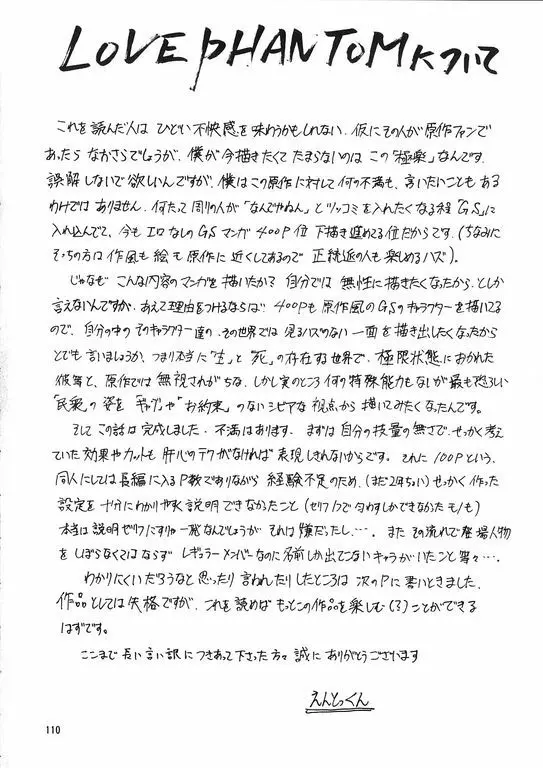 LOVE PHANTOMについて
これを読んだ人は ひどい不快感を味わうかもしれない. 仮にその人が原作ファンで
あったら なおさらでしょうが、僕が今描きたくて たまらないのは この「極楽」なんです.
誤解しないで欲しいんですが、僕はこの原作に対して何の不満も、言いたいことも ある
わけでは ありません. 何たって周りの人が「なんでやねん」とツッコミを入れたくなる程「GS」に
入れ込んでて、今も エロなしのGSマンガ 400P位 下描き進めてる位だからです(ちなみに
そっちの方は作風も絵も原作に近くしてあるので 正統派の人も楽しめるハズ).
じゃなぜ こんな内容のマンガを描いたか? 自分では 無性に描きたくなったから、としか
言えないんですが、あえて理由をつけるならば 400Pも 原作風のGSのキャラクターを描いてる
ので、自分の中の そのキャラクター達の、その世界では 見るハズのない 一面を描き出したくなったから
とでも言いましょうか、つまり本当に「生」と「死」の存在する世界で、極限状態におかれた
彼等と、原作では無視されがちな、しかし実のところ 何の特殊能力もないが最も恐ろしい
「民衆」の姿を「ギャグ」や「お約束」のないシビアな視点から描いてみたくなったんです。
そして この話は完成しました. 不満はあります. まずは自分の技量の無さで、せっかく考え
ていた効果やカットも 肝心のテクがなければ 表現しきれないからです. それに 100Pという、
同人にしては長編に入るP数でありながら 経験不足のため、(まだ2年ちょい) せっかく作った
設定を十分にわかりやすく説明できなかったこと (セリフ1つで匂わすしかできなかったモノも)
本当は説明ゼリフにすりゃ一発なんでしょうが それは嫌だったし…. また その流れで登場人物
を しぼらなくてはならず レギュラーメンバーなのに名前しか出てこないキャラがいたこと 等々….
わかりにくいだろうなと思ったり 言われたりしたところは 次のPに書いときました.
作品としては失格ですが、これを読めば もっとこの作品を楽しむ(?)ことができる
はずです。
ここまで長い言い訳につきあって下さった方々 誠に ありがとうございます
えんとっくん
110